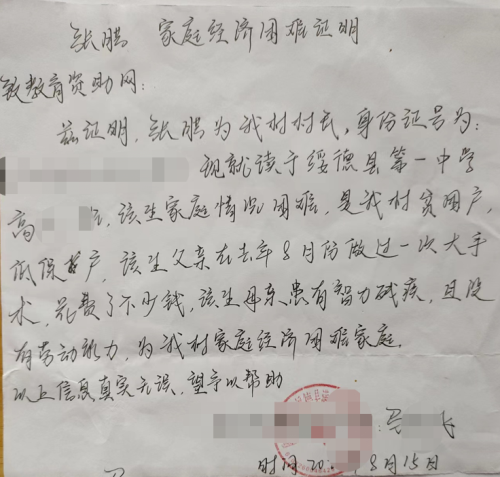 张鹏 家庭经济困难证明
致教育资助网：
兹证明，张鹏为我村村民，身份证号为：
现就读于绥德县第一中学
高 ，该生家庭情况困难，是我村贫困户，
低保户，该生父亲在去年8月份做过一次大手
术，花费了不少钱，该生母亲患有智力残疾，且没
有劳动能力，为我村家庭经济困难家庭。
以上信息真实无误，望予以帮助
时间20 8月15日